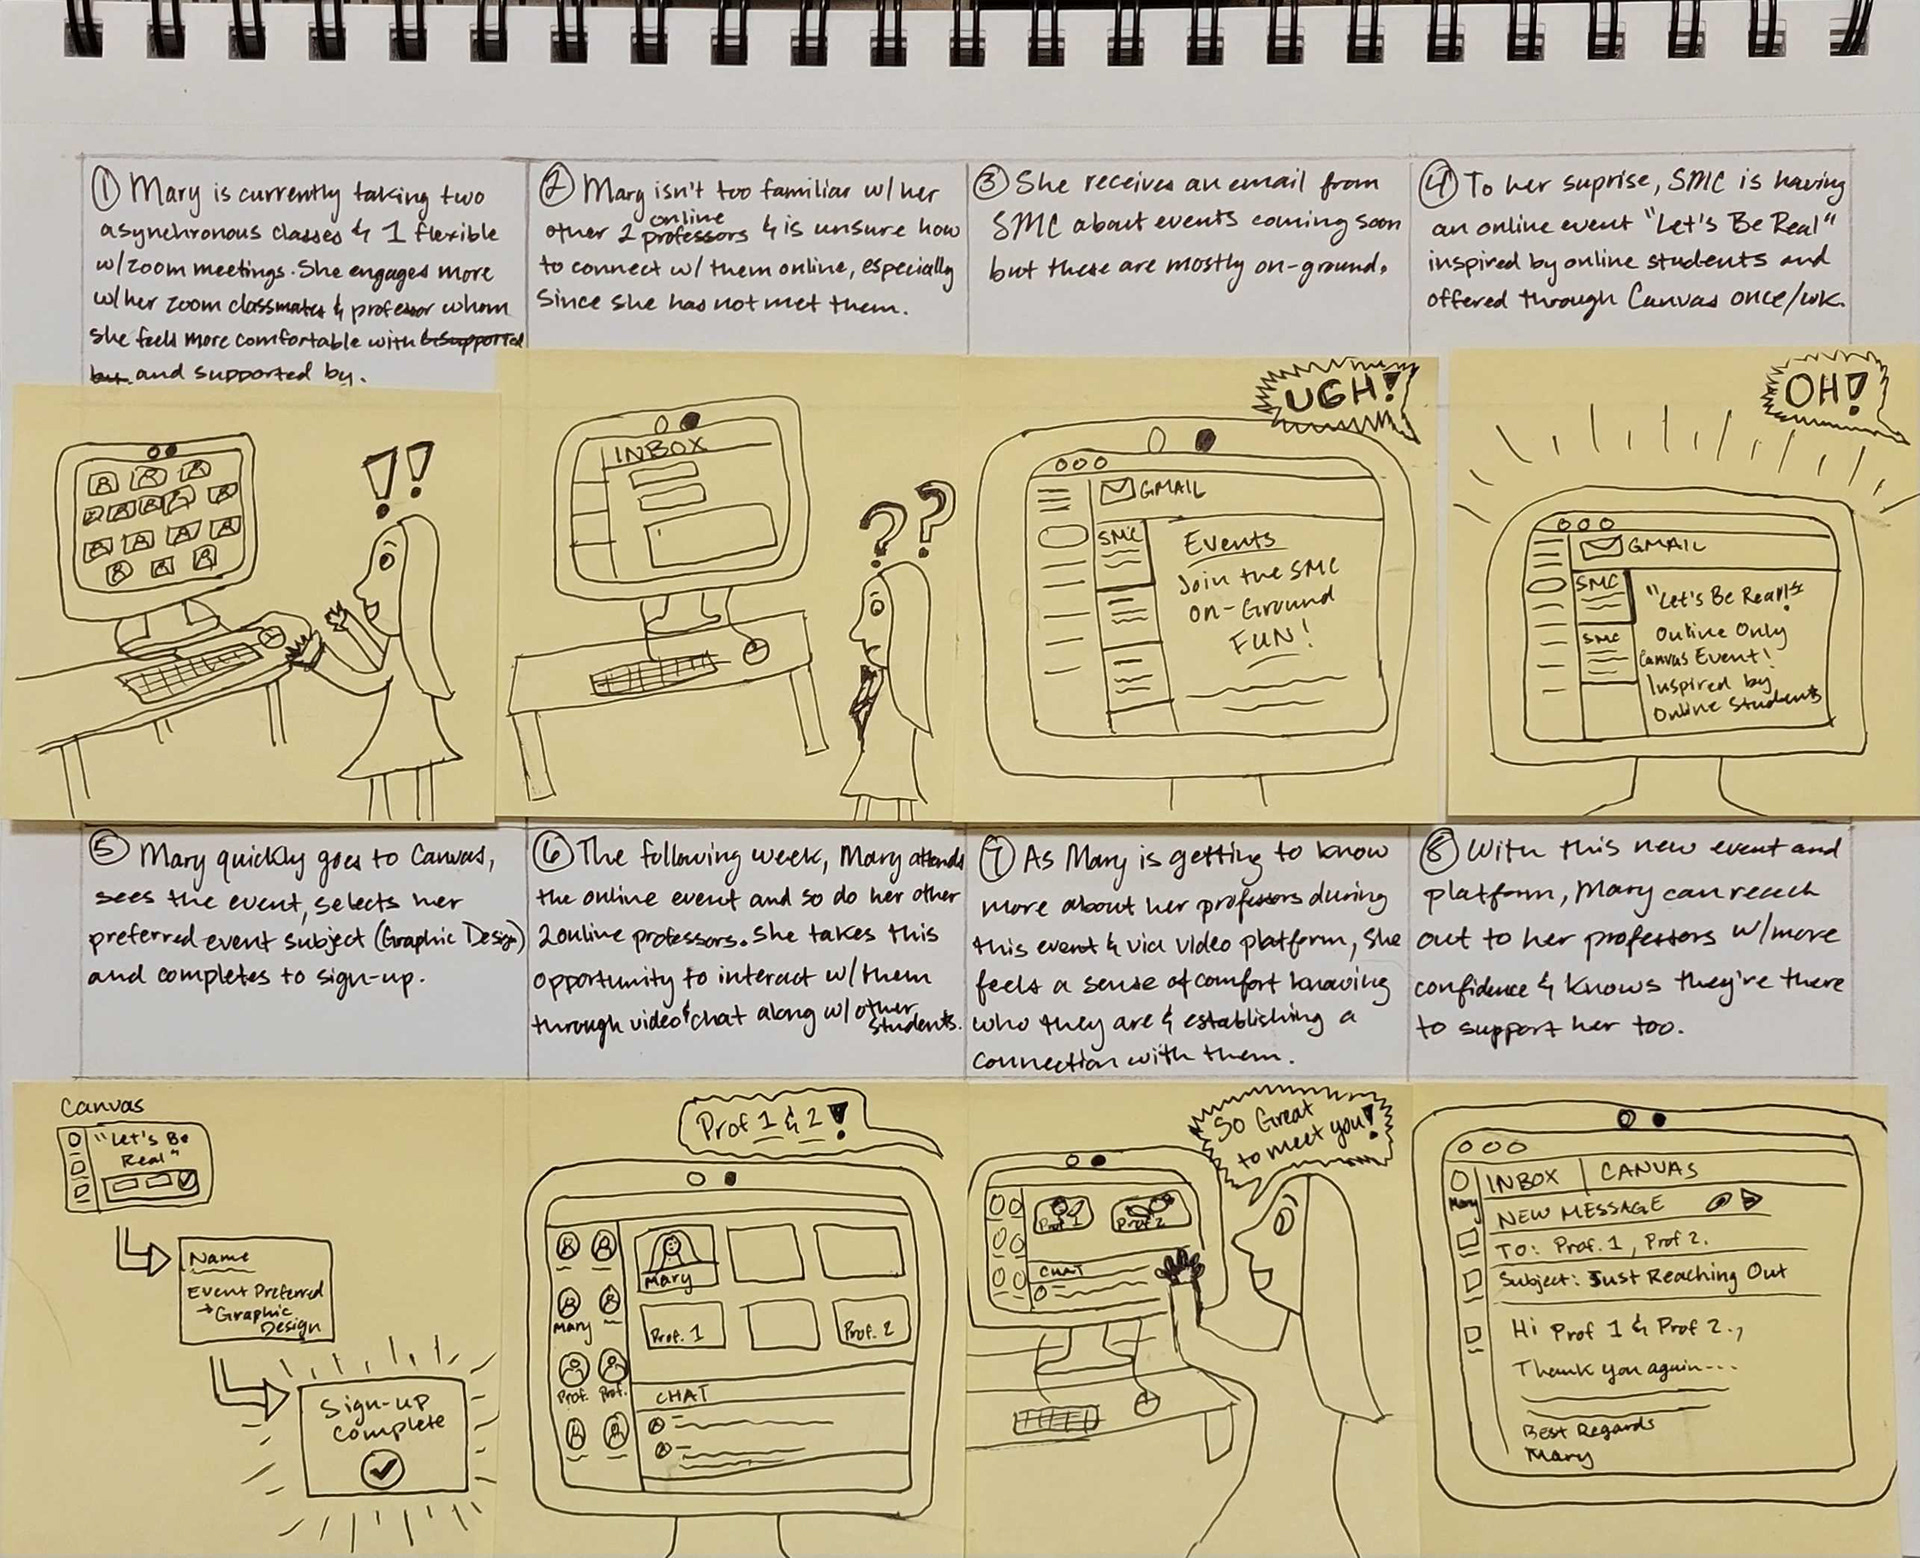 ① Mary is currently taking two
asynchronous classes & 1 flexible
w/zoom meetings. She engages more
w/her zoom classmates & professor whom
she feels more comfortable with & supported
by. and supported by.
② Mary isn't too familiar w/her
other 2 online professors & is unsure how
to connect w/ them online, especially
since she has not met them.
③ She receives an email from
SMC about events coming soon
but these are mostly on-ground.
④ To her suprise, SMC is having
an online event "Let's Be Real"
inspired by online students and
offered through Canvas once/wk.
!!
INBOX
??
UGH!
GMAIL
SMC
Events
Join the SMC
On-Ground
FUN!
OH!
GMAIL
SMC
SMC
"Let's Be Real"!
Online Only
Canvas Event!
Inspired by
Online Students
⑤ Mary quickly goes to Canvas,
sees the event, selects her
preferred event subject (Graphic Design)
and completes to sign-up.
⑥ The following week, Mary attends
the online event and so do her other
2 online professors. She takes this
opportunity to interact w/them
through video & chat along w/ other
students.
⑦ As Mary is getting to know
more about her professors during
this event & via video platform, she
feels a sense of comfort knowing
who they are & establishing a
connection with them.
⑧ With this new event and
platform, Mary can reach
out to her professors w/more
confidence & knows they're there
to support her too.
Canvas
"Let's Be
Real"
Name
Event Preferred
→ Graphic
Design
Sign-up
Complete
Prof 1 & 2!
Mary
Mary
Prof. 1
Prof. 2
Prof. Prof.
CHAT
So Great
to meet you!
Prof 1
Prof 2
CHAT
INBOX | CANVAS
Mary
NEW MESSAGE
To: Prof. 1, Prof 2.
Subject: Just Reaching Out
Hi Prof 1 & Prof 2.,
Thank you again...
Best Regards
Mary